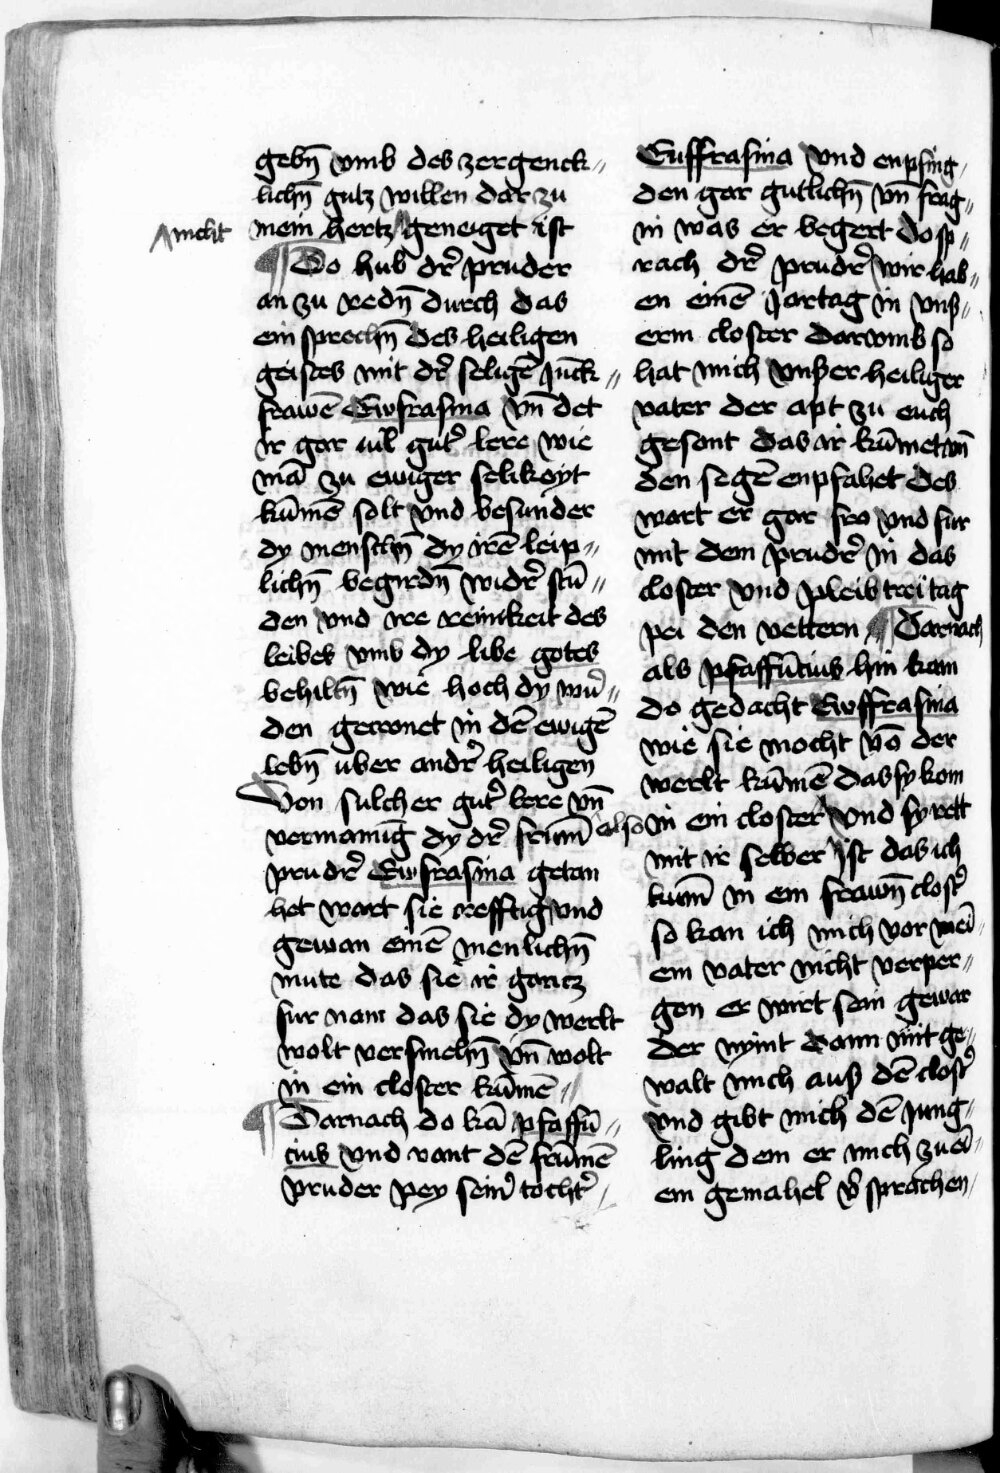 gebn̄ vmb des zergenck〃
lichn̄ gutz willen dar zu
nicht
mein hertz geneiget ist
¶ Do hub dr̄ pruder
an zu redn̄ durch das
ein sprechn̄ des heiligen
geistes mit dr̄ seligē Junck〃
frawē Ewfrasina vn̄ det
ir gar uil gut᷑ lere wie
mā zu ewiger selikeyt
kūmē solt vnd besunder
dy menschn̄ dy irē leip〃
lichn̄ begirdn̄ widr̄ stū〃
den vnd ire reinikeit des
leibes vmb dy libe gotes
behiltn̄ wie hoch dy wu᷑〃
den gecronet in dē ewigē
lebn̄ uber andr̄ heiligen
Von sulcher gut᷑ lere vn̄
vermanūg dy dr̄ frum̄ also
prudr̄ Ewfrasina getan
het wart sie crefftig vnd
gewan einē menlichn̄
mute das sie ir gantz
fur nam das sie dy werlt
wolt versmehn̄ vn̄ wolt
in ein closter kūmē〃
¶ Darnach do kā pfaffū〃
cius vnd vant dē frūmē
pruder pey sein᷑ tocht᷑
Euffrasina vnd enpfing
den gar gutlichn̄ vn̄ frag〃
in was er begert do sp〃
rach dr̄ prudr̄ wir hab〃
en einē Jartag in vnß〃
erm closter darvmb so
hat mich vnßer heiliger
vater der apt zu euch
gesant das ir kūmet vn̄
den segē enpfahet des
wart er gar fro vnd fur
mit dem prudr̄ in das
closter vnd pleib trei tag
pei den vettern ¶ Darnach
als pfaffūcius hin kam
do gedacht Ewffrasina
wie sie mocht vō der
werlt kūmē das sy kom
in ein closter vnd sy rett
mit ir selber ist das ich
kum̄ in ein frawn̄ clost᷑
so kan ich mich vor mei〃
em vater nicht verper〃
gen er wirt sein gewar
der nymt dann mit ge〃
walt mich auß dē clost᷑
vnd gibt mich dē Jung〃
ling dem er mich zu ei〃
em gemahel v᷑sprachen